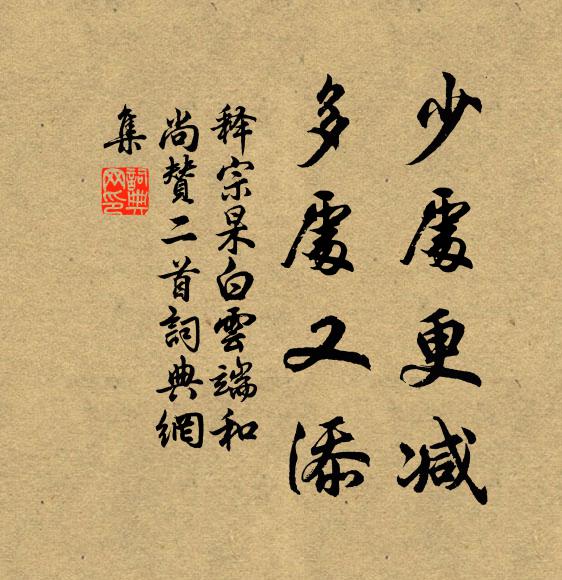 少處更减
多處又添
释宗杲白雲端和
尚贊二首詞典網
集
詞典
网印